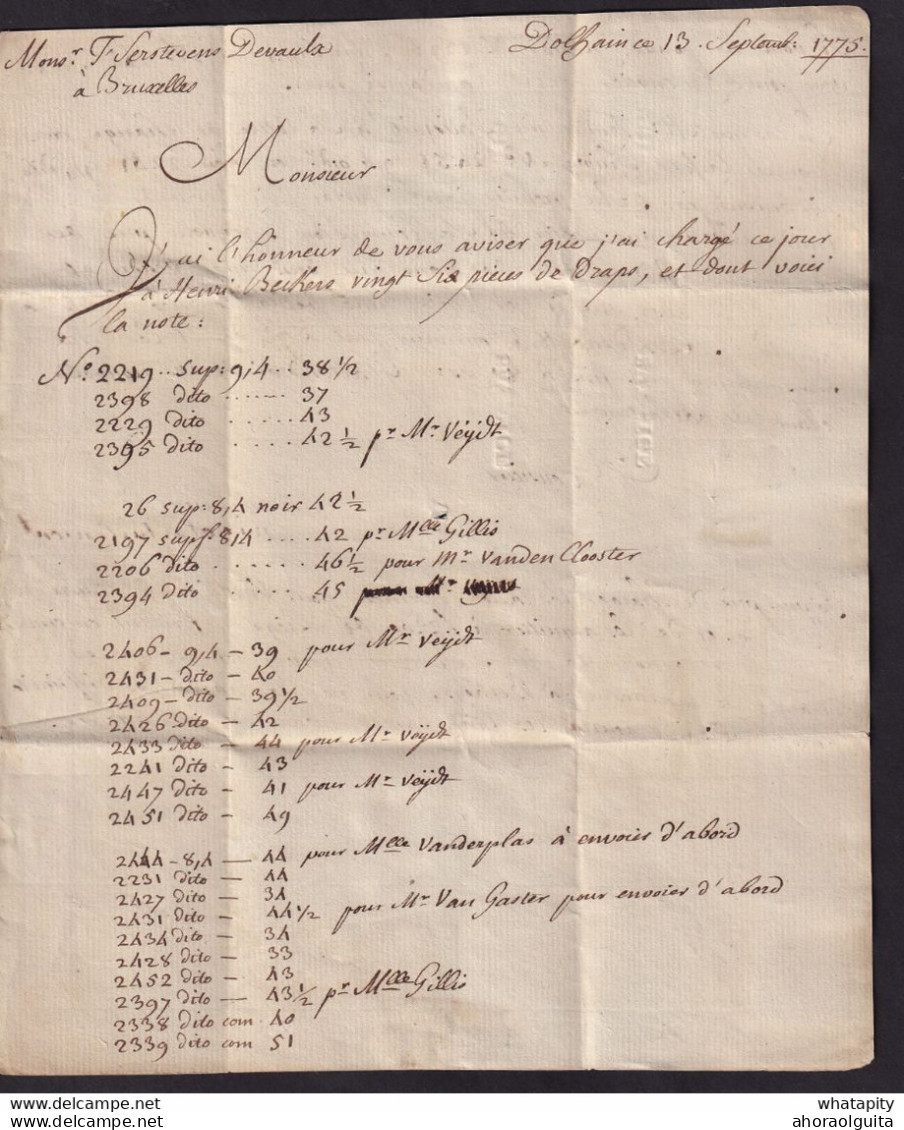 Mons.r F Serstevens Devaula
à Bruxelles
Dolhain ce 13 Septemb: 1775.
Monsieur
J'ai l'honneur de vous aviser que j'ai chargé ce jour
à Henri Beckers vingt Six pièces de Draps, et dont voici
la note:
N.o 2219 .. sup: 9/4 .. 38 1/2
2398 dito ...... 37
2229 dito ..... 43
2395 dito ..... 42 1/2 pr Mr Veÿdt
26 sup: 8/4 noir 42 1/2
2197 supf: 8/4 .... 42 pr Mlle Gillis
2206 dito ...... 46 1/2 pour Mr Vanden Clooster
2394 dito ...... 45
2406 - 9/4 - 39 pour Mr Veÿdt
2431 - dito - 40
2409 - dito - 39 1/2
2426 dito - 42
2433 dito - 44 pour Mr Veÿdt
2241 dito - 43
2447 dito - 41 pour Mr Veÿdt
2451 dito - 49
2444 - 8/4 - 44 pour Mlle Vanderplas à envoier d'abord
2231 dito - 44
2427 dito - 34
2431 dito - 44 1/2 pour Mr Van Gaster pour envoier d'abord
2434 dito - 34
2428 dito - 33
2452 dito - 43
2397 dito - 43 1/2 pr Mlle Gillis
2338 dito com 40
2339 dito com 51
whatapity
ahoraolguita
delcampe.net